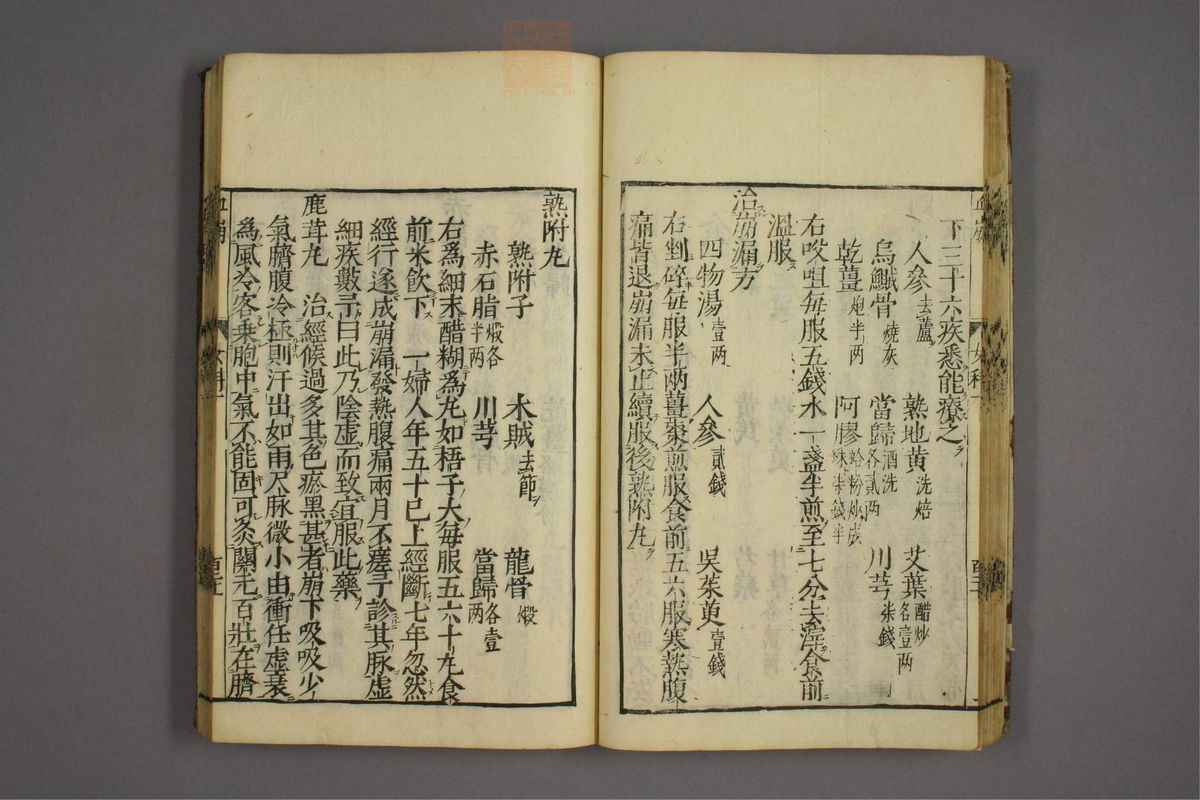 下三十六疾悉能療之
人參去蘆 熟地黄洗焙 艾葉醋炒各壹两
烏鰂骨燒灰 當歸酒洗各貳两 川芎柒錢
乾薑炮半两 阿膠蛤粉炒成珠柒錢半
右㕮咀每服五錢水一盞半煎至七分去滓食前
溫服
治崩漏方
四物湯壹两 人參貳錢 吳茱萸壹錢
右剉碎每服半兩薑棗煎服食前五六服寒熱腹
痛皆退崩漏未止續服後熟附丸
熟附丸
熟附子 木賊去節 龍骨煅
赤石脂煅各半两 川芎 當歸各壹两
右爲細末醋糊爲丸如梧子大每服五六十丸食
前米飲下 一婦人年五十已上經斷七年忽然
經行遂成崩漏發熱腹痛兩月不瘥予診其脉虚
細疾數予曰此乃陰虚而致宜服此藥
鹿茸丸 治經候過多其色瘀黑甚者崩下吸吸少
氣臍腹冷極則汗出如雨尺脉微小由衝任虚衰
為風冷客乗胞中氣不能固可灸關元百壯在臍
血崩
女科